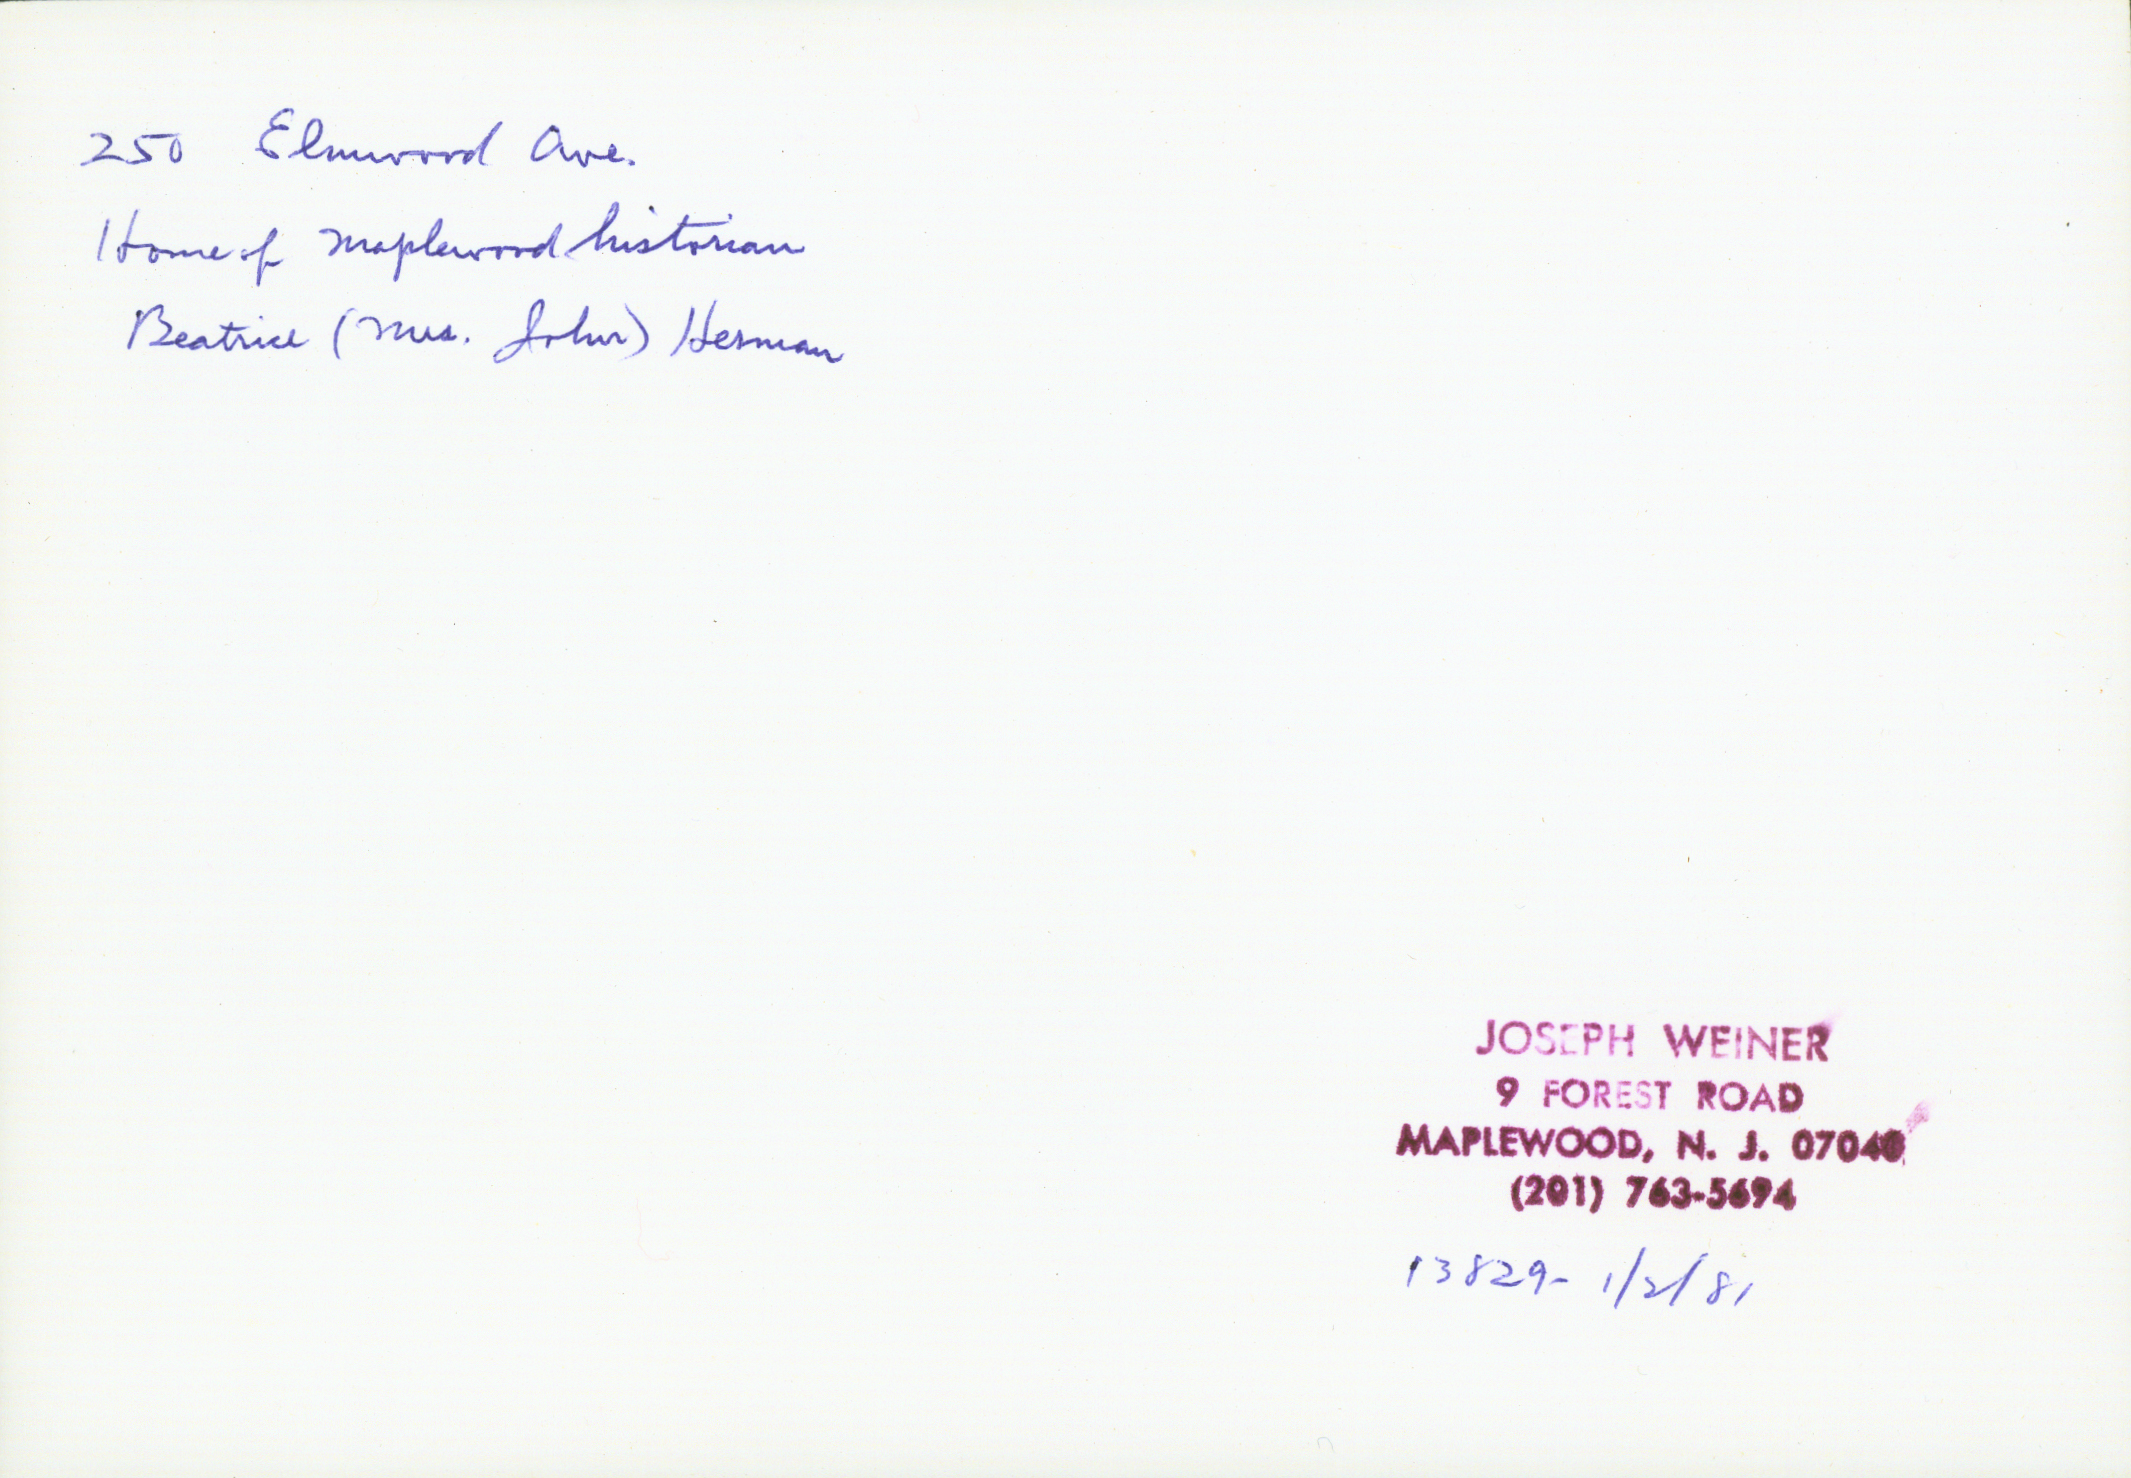 250 Elmwood Ave.
Home of Maplewood historian
Beatrice (Mrs. John) Herman
JOSEPH WEINER
9 FOREST ROAD
MAPLEWOOD, N. J. 07040
(201) 763-5694
13829- 1/2/81